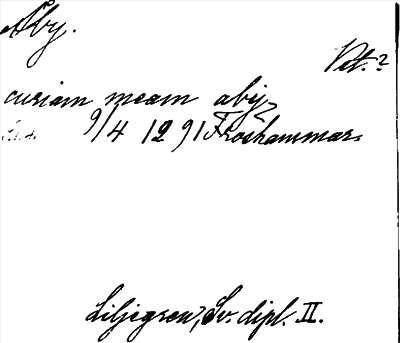 Åby.
Vet.?
curiam meam abij
9/4 1291 Froshammar
Liljegren, Sv. dipl. II.